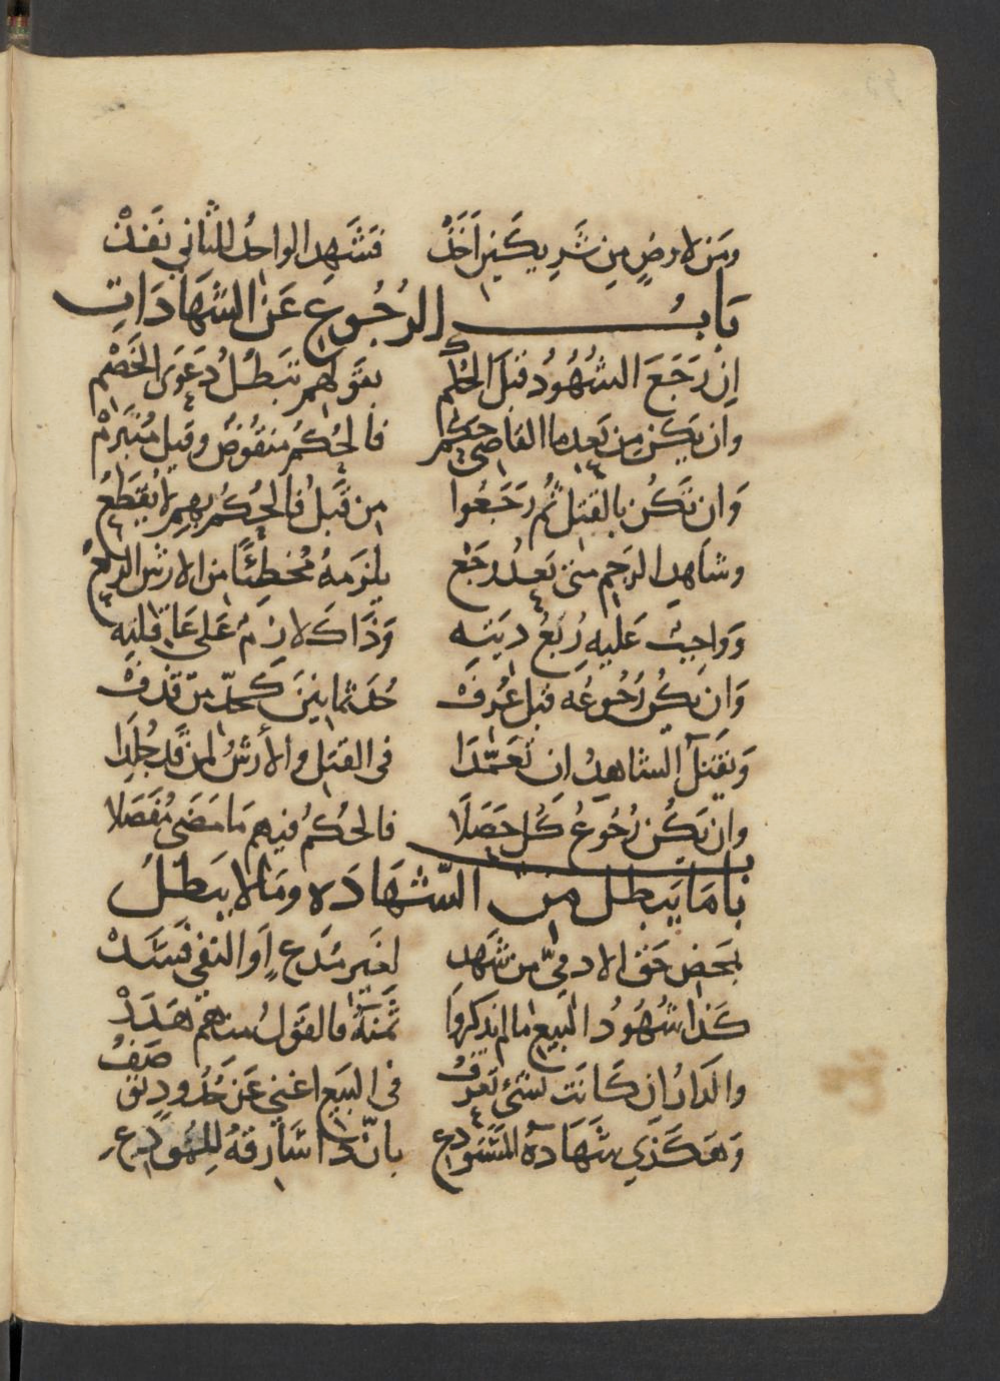 ومن لارض من شريكين اخذ فشهد الواحد للثاني نفذ
باب الرجوع عن الشهادات
ان رجع الشهود قبل الحكم بقولهم تبطل دعوى الخصم
وان يكن من بعد ما القاضي حكم فالحكم منقوض وقيل منبرم
وان تكن بالقتل ثم رجعوا من قبل فالحكم بهم لا يقطع
وشاهد الرجم متى بعد رجع يلزمه مخطئا من الارش الربع
وواجب عليه ربع ديته وذاك لازم على عاقلته
وان يكن رجوعه قبل عرف حد ثمانين كحد من قذف
ويقتل الشاهد ان تعمدا في القتل والأرش لمن قد جلدا
وان يكن رجوع كل حصلا فالحكم فيهم ما مضى مفصلا
باب ما يبطل من الشهاده وما لا يبطل
بمحض حق الادمي من شهد لغير مدع او النفي فسد
كذا شهود البيع ما لم يذكروا ثمنه فالقول منهم هدر
والدار ان كانت لشئ تعرف في البيع اغني عن حدود توصف
وهكذي شهادة المستودع بان ذا سارقه للمودع